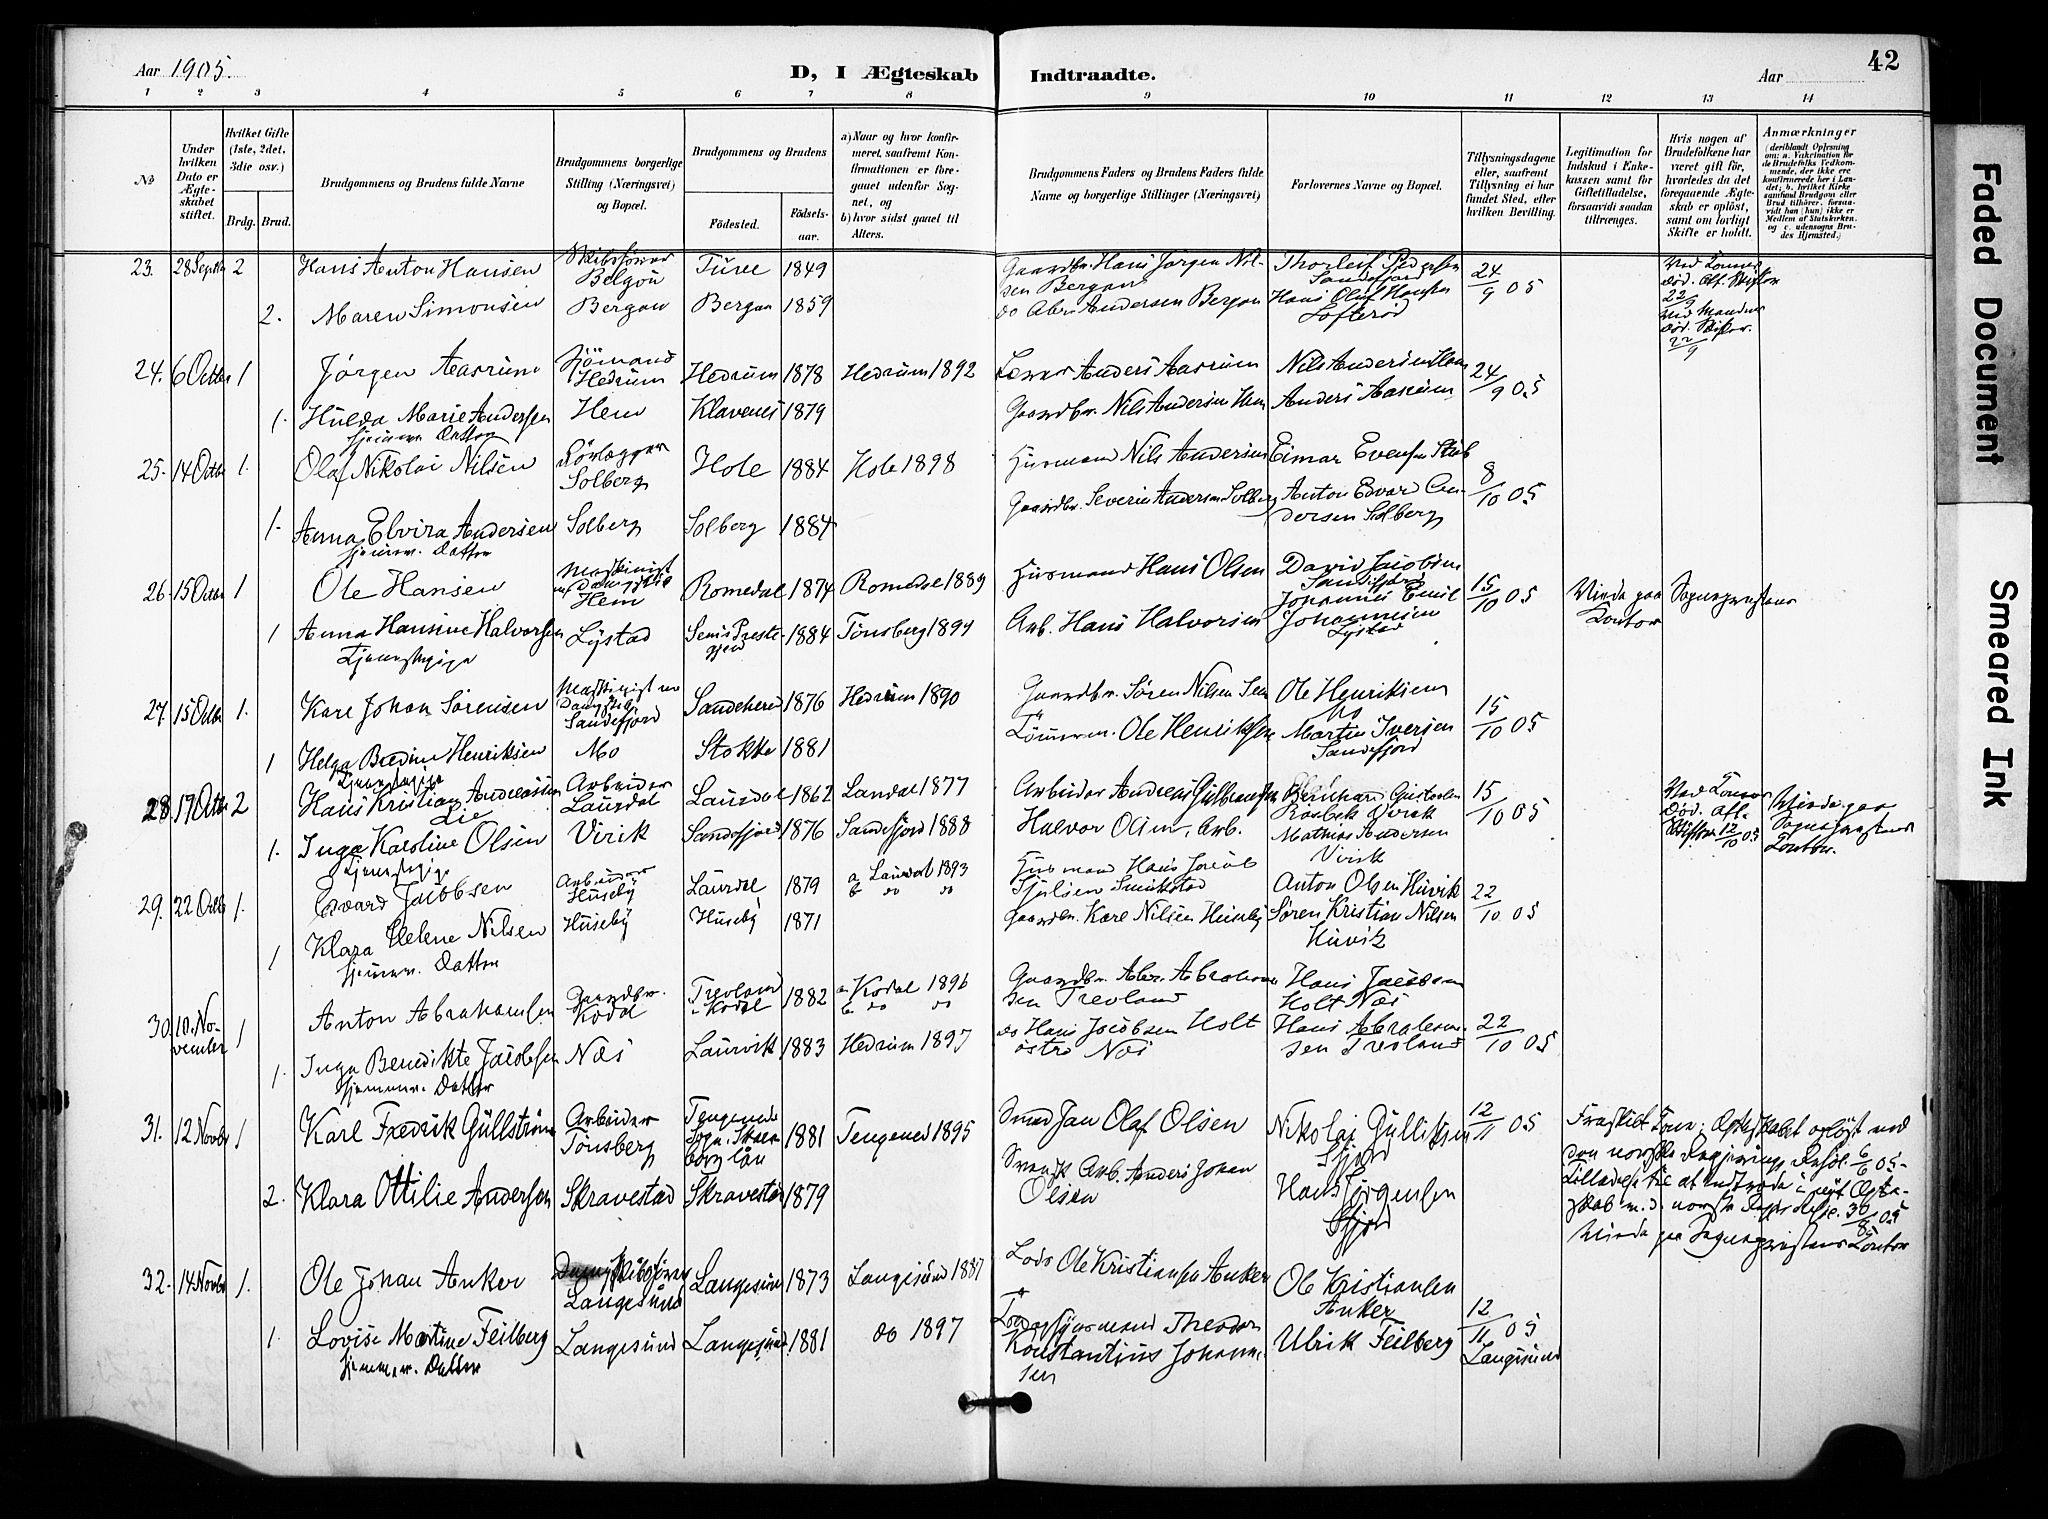 Aar 1905.
D, I Ægteskab Indtraadte.
Aar
42
1 2 3 4 5 6 7 8 9 10 11 12 13 14
No
Under hvilken Dato er Ægteskabet stiftet.
Hvilket Gifte (1ste, 2det, 3die osv.)
Brdg. Brud.
Brudgommens og Brudens fulde Navne
Brudgommens borgerlige Stilling (Næringsvei) og Bopæl.
Brudgommens og Brudens
Fødested.
Fødselsaar.
a) Naar og hvor konfirmeret, saafremt Konfirmationen er foregaaet udenfor Sognet, og
b) hvor sidst gaaet til Alters.
Brudgommens Faders og Brudens Faders fulde Navne og borgerlige Stillinger (Næringsvei)
Forlovernes Navne og Bopæl.
Tillysningsdagene eller, saafremt Tillysning ei har fundet Sted, efter hvilken Bevilling.
Legitimation for Indskud i Enkekassen samt for Giftetilladelse, forsaavidt saadan tiltrænges.
Hvis nogen af Brudefolkene har været gift før, hvorledes da det foregaaende Ægteskab er opløst, samt om lovligt Skifte er holdt.
Anmærkninger (deriblandt Oplysning om: a. Vakcination for de Brudefolks Vedkommende, der ikke ere konfirmerede her i Landet; b. hvilket Kirkesamfund Brudgom eller Brud tilhører, forsaavidt han (hun) ikke er Medlem af Statskirken, og c. udensogns Brudes Hjemsted.)
23. 28 Septb 2 Hans Anton Hansen Skibsfører Bergan 1849 Gaardbr. Hans Jørgen Nilsen Bergan Sandefjord 24/9 05
2. Maren Simonsen Bergan Bergan 1859 do Abr. Andersen Bergan Hans Oluf Hansen Lofterød
24. 6 Octbr 1 Jørgen Aasrum Sjömand Hedrum Hedrum 1878 Hedrum 1892 Anders Aasrum Nils Andersen Hem 24/9 05
1. Hulda Marie Andersen hjemmev. Datter Hem Klavenes 1879 Gaardbr. Nils Andersen Hem Anders Aasrum
25. 14 Octbr 1. Olaf Nikolai Nilsen Rörlægger Solberg Hole 1884 Hole 1898 Husmand Nils Andersen Eimar Evensen 8/10 05
1. Anna Elvira Andersen hjemmev. Datter Solberg Solberg 1884 Gaardbr. Severin Andersen Solberg Anton Edvar Andersen Solberg
26. 15 Octbr 1 Ole Hansen Maskinist Hem Romedal 1874 Romedal 1889 Husmand Hans Olsen David Jacobsen Sandefjord 15/10 05 Vinda paa Kontor Sognepræstens
1 Anna Hansine Halvorsen Tjenestepige Lystad Sems Prestegjeld 1884 Tönsberg 1899 Arb. Hans Halvorsen Johannes Emil Johannesen Lystad
27. 15 Octbr 1. Karl Johan Sørensen Maskinist Sandefjord Sandeherred 1876 Hedrum 1890 Gaardbr. Søren Nilsen Sem Ole Henriksen Mo 15/10 05
1 Helga Bredine Henriksen Tjenestepige Mo Stokke 1881 Tömmerm. Ole Henriksen Martin Iversen Sandefjord
28. 17 Octbr 2 Hans Kristian Andreassen Lie Arbeider Laurdal Laurdal 1862 Laurdal 1877 Arbeider Andreas Gulbransen 15/10 05
1. Inga Karoline Olsen Tjenestepige Virik Sandefjord 1876 Sandefjord 1888 Halvor Olsen, Arb. Mathias Andersen Virik
29. 22 Octb 1. Edvard Jacobsen Arbeider Huseby Laurdal 1879 a Laurdal 1893 b do do Husmand Hans Jacob Anton Olsen Huvik 22/10 05
1 Klara Helene Nilsen hjemmev. Datter Huseby Huseby 1871 Gaardbr. Karl Nilsen Huseby Søren Kristian Nilsen Huvik
30 10. November 1 Anton Abrahamsen Gaardbr. Kodal Trevland i Kodal 1882 a Kodal 1896 b do do Gaardbr. Abr. Abrahamsen Trevland Hans Jacobsen Holt Næs 22/10 05
1. Inga Benedikte Jacobsen hjemmev. Datter Næs Laurvik 1883 Hedrum 1897 do Hans Jacobsen Holt östre Næs Hans Abrahamsen Trevland
31. 12 Novbr 1 Karl Fredrik Güllström Arbeider Tønsberg Tengened Sogn Skaraborg län 1881 Tengened 1895 Smed Jan Olaf Olsen Nikolai Gulliksen 12/11 05
2. Klara Ottilie Andersen Skravestad Skravestad 1879 Svensk Arb. Anders Johan Olsen Hans Jörgensen
Fraskilt Kone; Ægteskabet opløst ved den norske Regjerings Resol. 6/6 05. Tilladelse til at indtræde i nyt Ægteskab 30/8 05
32. 14 Novbr 1. Ole Johan Anker Skibsfører Langesund Langesund 1873 Langesund 1887 Lods Ole Kristiansen Anker Ole Kristiansen Anker 12/11 05 Langesund
1. Lovise Martine Feilberg hjemmev. Datter Langesund Langesund 1881 do 1897 Theodor Konstantius Johannesen Ulrik Feilberg
Faded Document
Smeared Ink